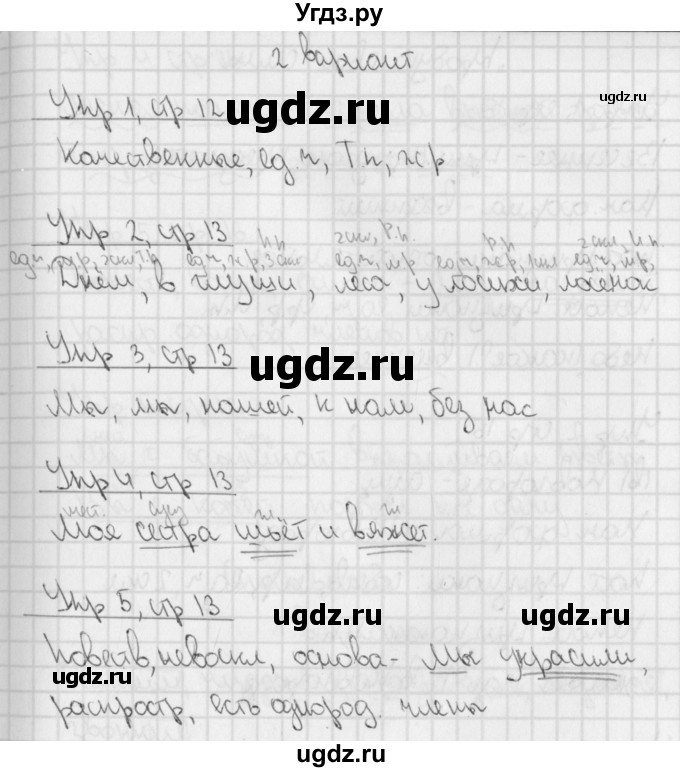 Угдз.ру
2 вариант
ugdz.ru
Упр 1, стр 12
ugdz.ru
Качественные, ед.ч, Т.п, ж.р
Упр 2, стр 13
п.п ген, Р.п. р.п 2скл, И.п.
ед.ч, м.р, 2скл, Т.п ед.ч, ж.р, 3скл ед.ч, м.р ед.ч, ж.р, 1скл ед.ч, м.р,
Днём, в глуши, леса, у лосихи, лосёнок
Упр 3, стр 13
ugdz.ru
Мы, мы, нашей, к нам, без нас
Упр 4, стр 13
ugdz.ru
мест. сущ гл. гл
Моя сестра шьёт и вяжет.
Упр 5, стр 13
ugdz.ru
ugdz.ru
Повеств, невоскл, основа - Мы украсили,
ugdz.ru
распростр, есть однород. члены
ugdz.ru